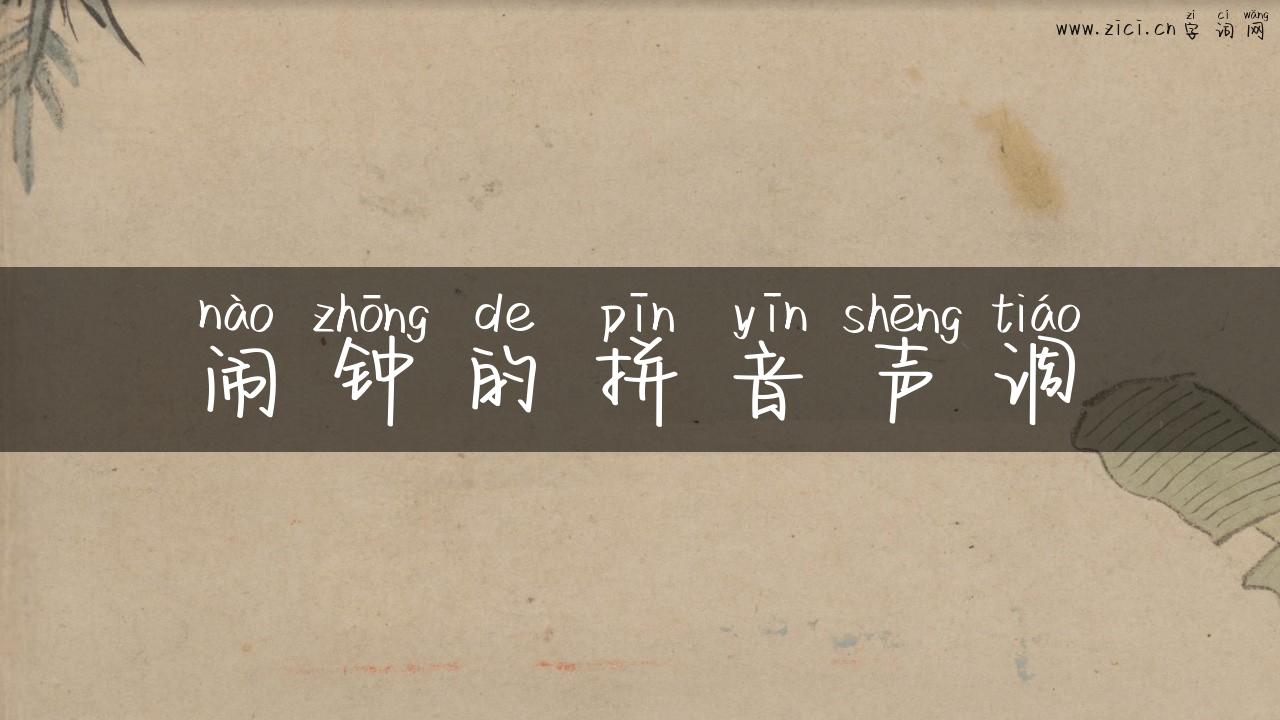 zì cí wǎng
www.zici.cn 字词网
nào zhōng de pīn yīn shēng tiáo
闹钟的拼音声调